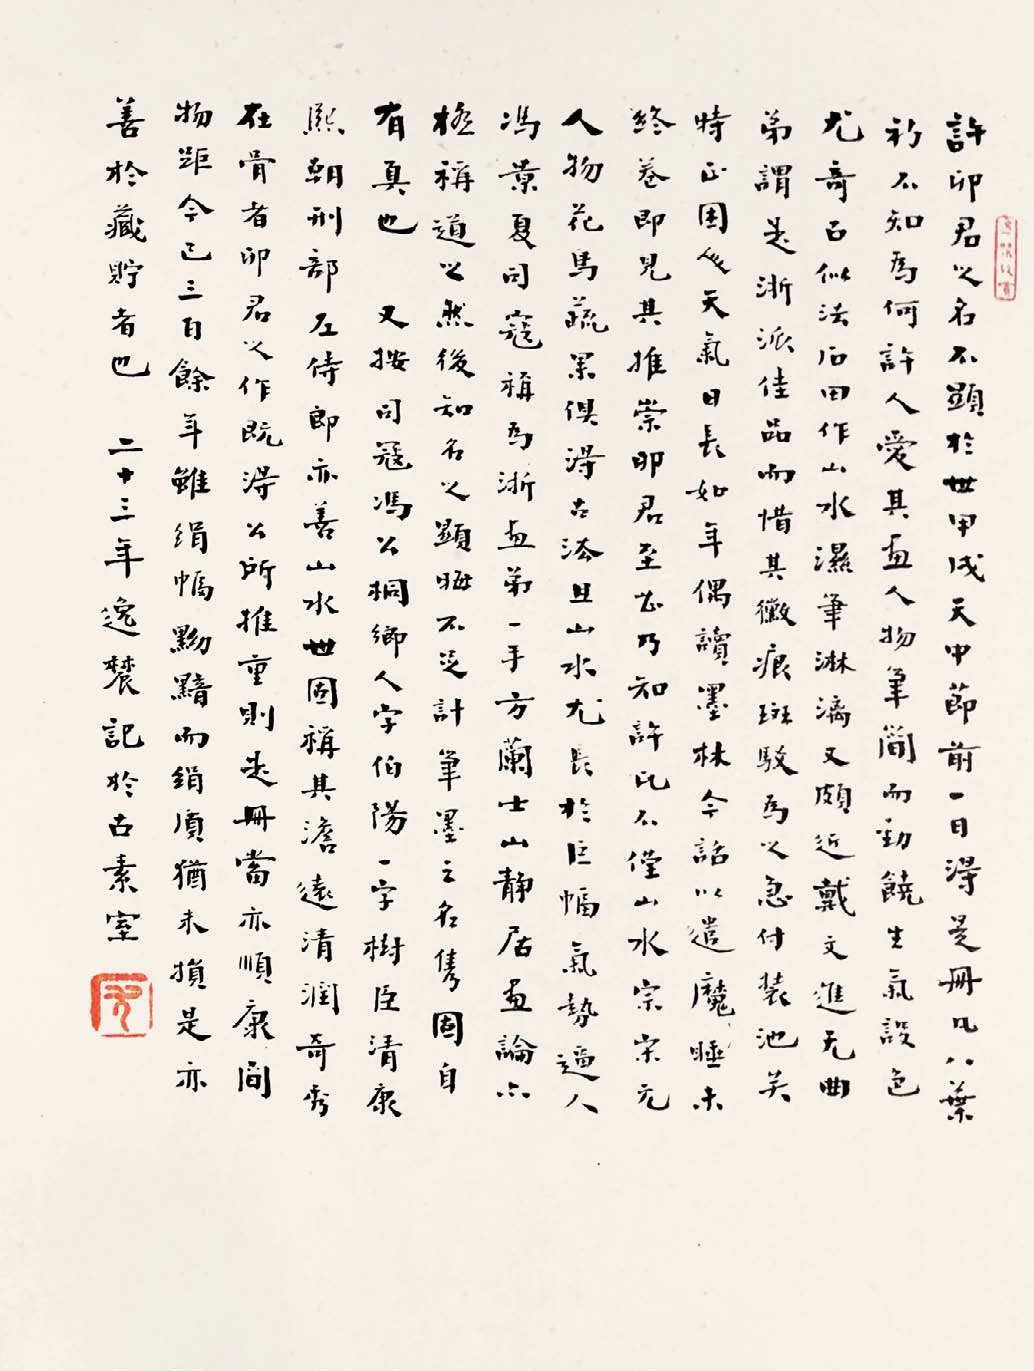 許卯君以名不顯於世甲戌天中節前一日得是冊凡八葉
初不知為何許人愛其畫人物筆簡而勁饒生氣設色
尤奇石似法石田作山水濕筆淋漓又頗近戴文進无曲
弟謂是浙派佳品而惜其黴痕斑駁為以急付裝池美
時正困人天氣日長如年偶讀墨林今話以遣魔睡未
終卷即見其推崇卯君至甚乃知許氏不僅山水宗宋元
人物花鳥蔬果俱得古法且山水尤長於巨幅氣勢逼人
馮景夏司寇稱為浙畫弟一手方蘭士山靜居畫論亦
極稱道以然後知名以顯晦不足計筆墨之名雋固自
有真也 又按司寇馮公桐鄉人字伯陽一字樹臣清康
熙朝刑部左侍郎亦善山水世固稱其澹遠清潤奇秀
在骨者卯君以作既得公所推重則是冊當亦順康間
物距今已三百餘年雖絹幅黝黯而絹質猶未損是亦
善於藏貯者也 二十三年逸𪎮記於古素室